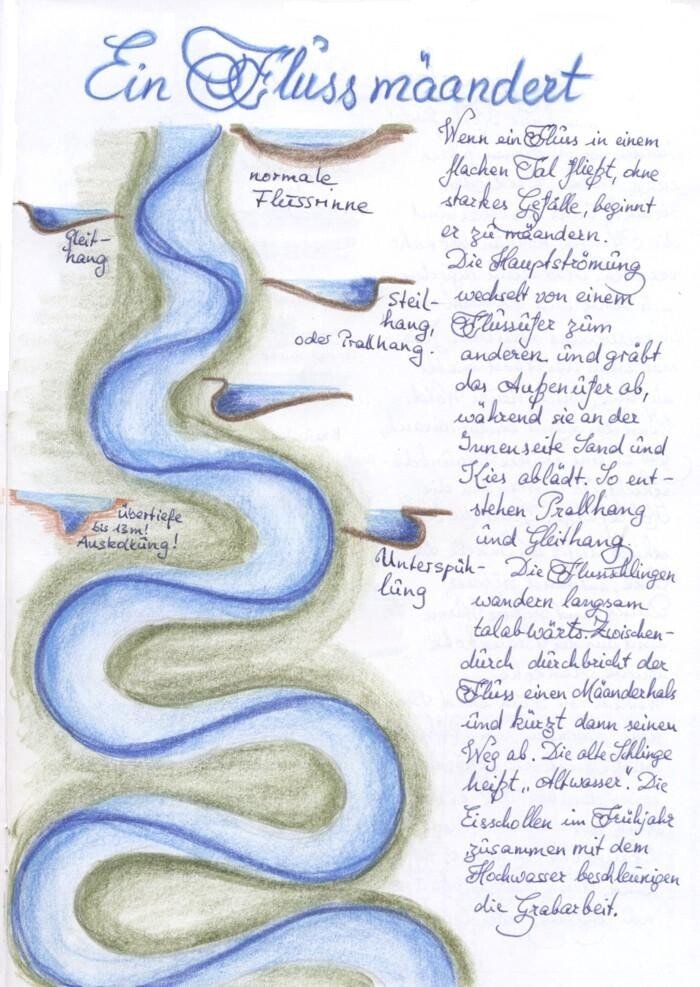 Ein Fluss mäandert
normale
Flussrinne
Gleit-
hang
Steil-
hang,
oder Prallhang.
Übertiefe
bis 13m!
Auskolkung!
Unterspüh-
lung
Wenn ein Fluss in einem
flachen Tal fließt, ohne
starkes Gefälle, beginnt
er zu mäandern.
Die Hauptströmung
wechselt von einem
Flussufer zum
anderen und gräbt
das Außenufer ab,
während sie an der
Innenseite Sand und
Kies ablädt. So ent-
stehen Prallhang
und Gleithang.
Die Flussschlingen
wandern langsam
talabwärts. Zwischen-
durch durchbricht der
Fluss einen Mäanderhals
und kürzt dann seinen
Weg ab. Die alte Schlinge
heißt „Altwasser". Die
Eisschollen im Frühjahr
zusammen mit dem
Hochwasser beschleunigen
die Grabarbeit.